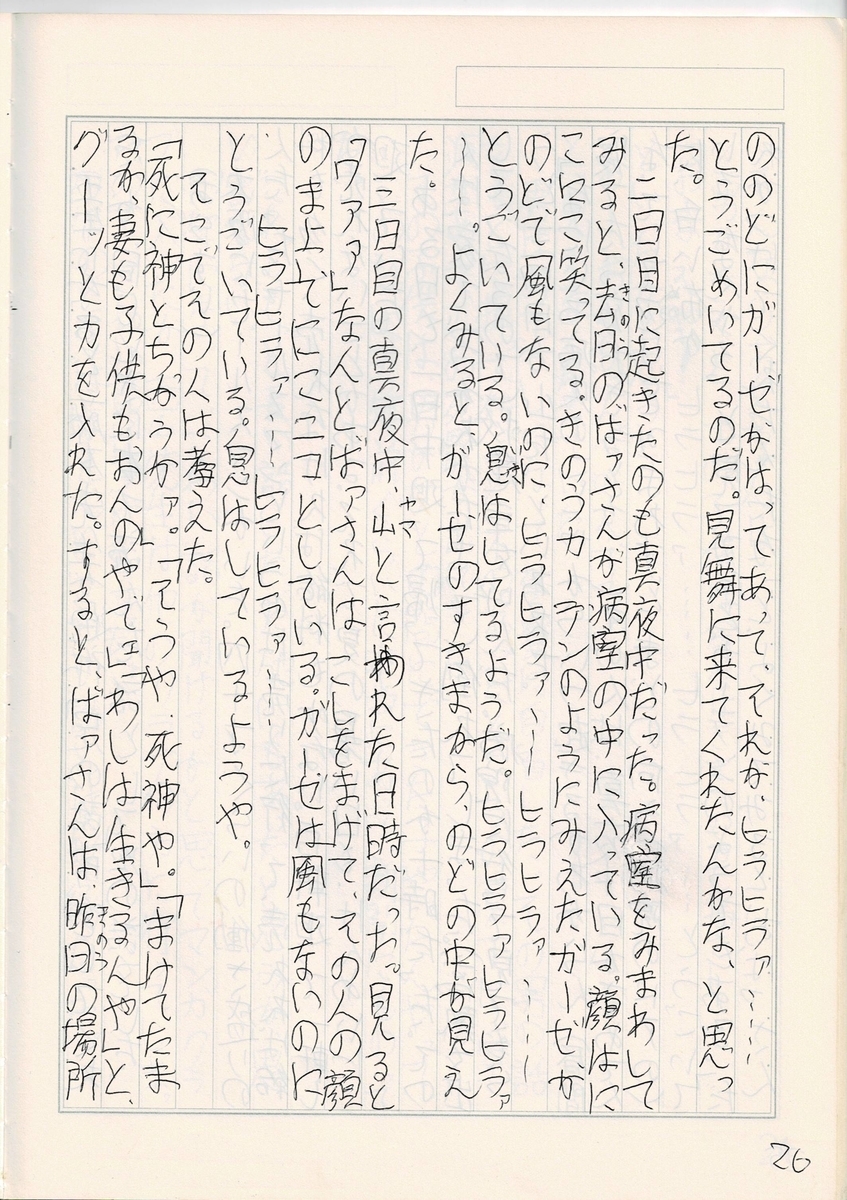 ののどにガーゼがはってあって、それが、ヒラヒラァ……
とうごめいてるのだ。見舞に来てくれたんかな、と思っ
た。
二日目に起きたのも真夜中だった。病室をみまわして
みると、去日のばァさんが病室の中に入っている。顔はに
こにこ笑ってる。きのうカーテンのようにみえたガーゼが
のどで風もないのに、ヒラヒラァ……ヒラヒラァ……
とうごいている。息はしてるようだ。ヒラヒラァヒラヒラァ
……。よくみると、ガーゼのすきまから、のどの中が見え
た。
三日目の真夜中、山と言われた日時だった。見ると
「ワァァ」なんと、ばァさんは こしをまげて、その人の顔
のま上でにこニコとしている。ガーゼは風もないのに
ヒラヒラァ…… ヒラヒラァ……
とうごいている。息はしているようや。
そこでその人は考えた。
「死に神とちがうかァ。」「そうや、死神や。」「まけてたま
るか、妻も子供もおんのやでェ」「わしは生きるんや」と、
グーッと力を入れた。すると、ばァさんは、昨日の場所
きのう
いき
ヤマ
きのう
26